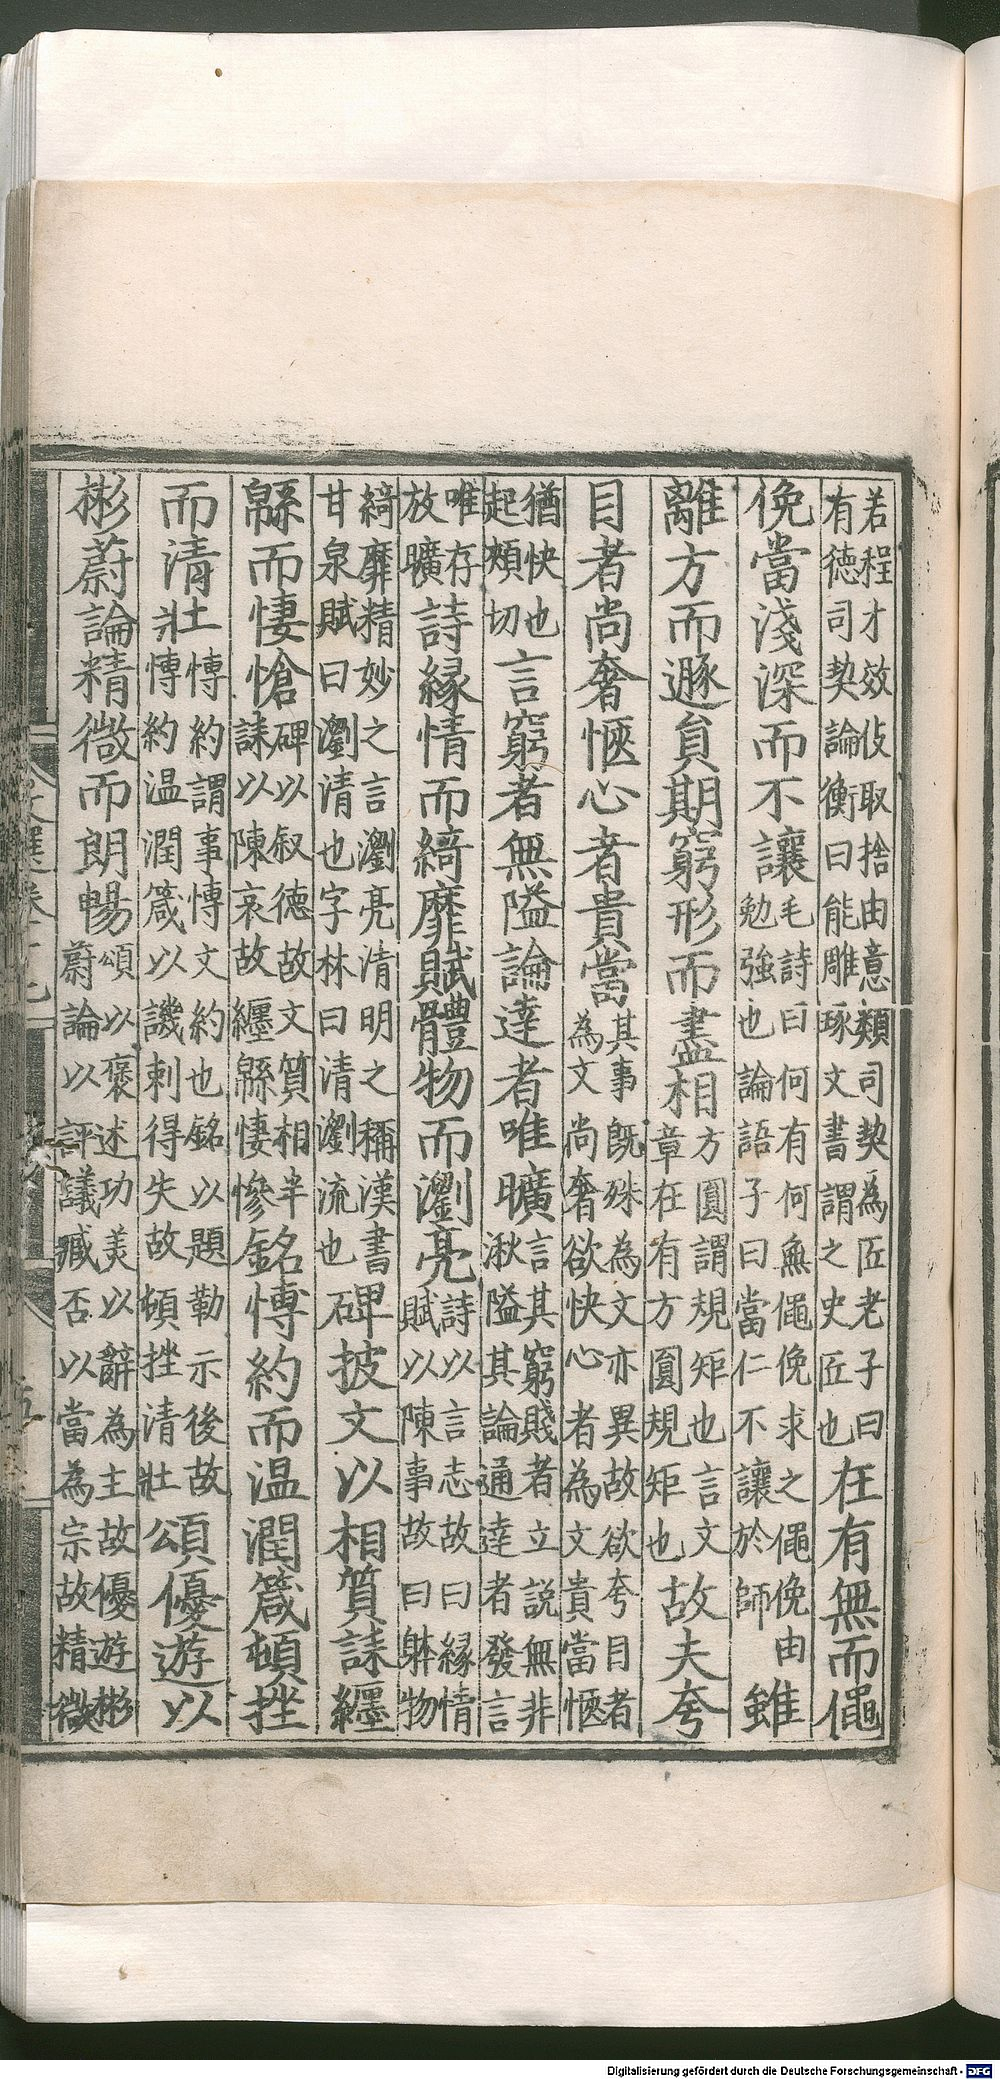 若程才效伎取捨由意類司契為匠老子曰
有德司契論衡曰能雕琢文書謂之史匠也在有無而僶
俛當淺深而不讓毛詩曰何有何無僶俛求之僶俛由
勉強也論語子曰當仁不讓於師雖
離方而遯員期窮形而盡相方圓謂規矩也言文
章在有方圓規矩也故夫夸
目者尚奢愜心者貴當其事既殊為文亦異故欲夸目者
為文尚奢欲快心者為文貴當愜
猶快也
起頰切言窮者無隘論達者唯曠言其窮賤者立說無非
湫隘其論通達者發言
唯存
放曠詩緣情而綺靡賦體物而瀏亮詩以言志故曰緣情
賦以陳事故曰躰物
綺靡精妙之言瀏亮清明之稱漢書
甘泉賦曰瀏清也字林曰清瀏流也碑披文以相質誄纏
緜而悽愴碑以叙德故文質相半
誄以陳哀故纏緜悽慘銘博約而温潤箴頓挫
而清壯博約謂事博文約也銘以題勒示後故
博約温潤箴以譏刺得失故頓挫清壯頌優遊以
彬蔚論精微而朗暢頌以褒述功美以辭為主故優遊彬
蔚論以評議臧否以當為宗故精微
文選卷十七
五
Digitalisierung gefördert durch die Deutsche Forschungsgemeinschaft - DFG